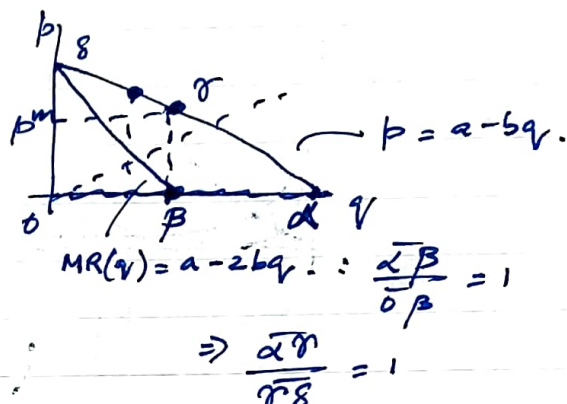 p
δ
γ
pᵐ
p = a - bq.
0 β α q
MR(q) = a - 2bq. ∴ αβ̅ / 0β̅ = 1
⇒ αγ̅ / γδ̅ = 1